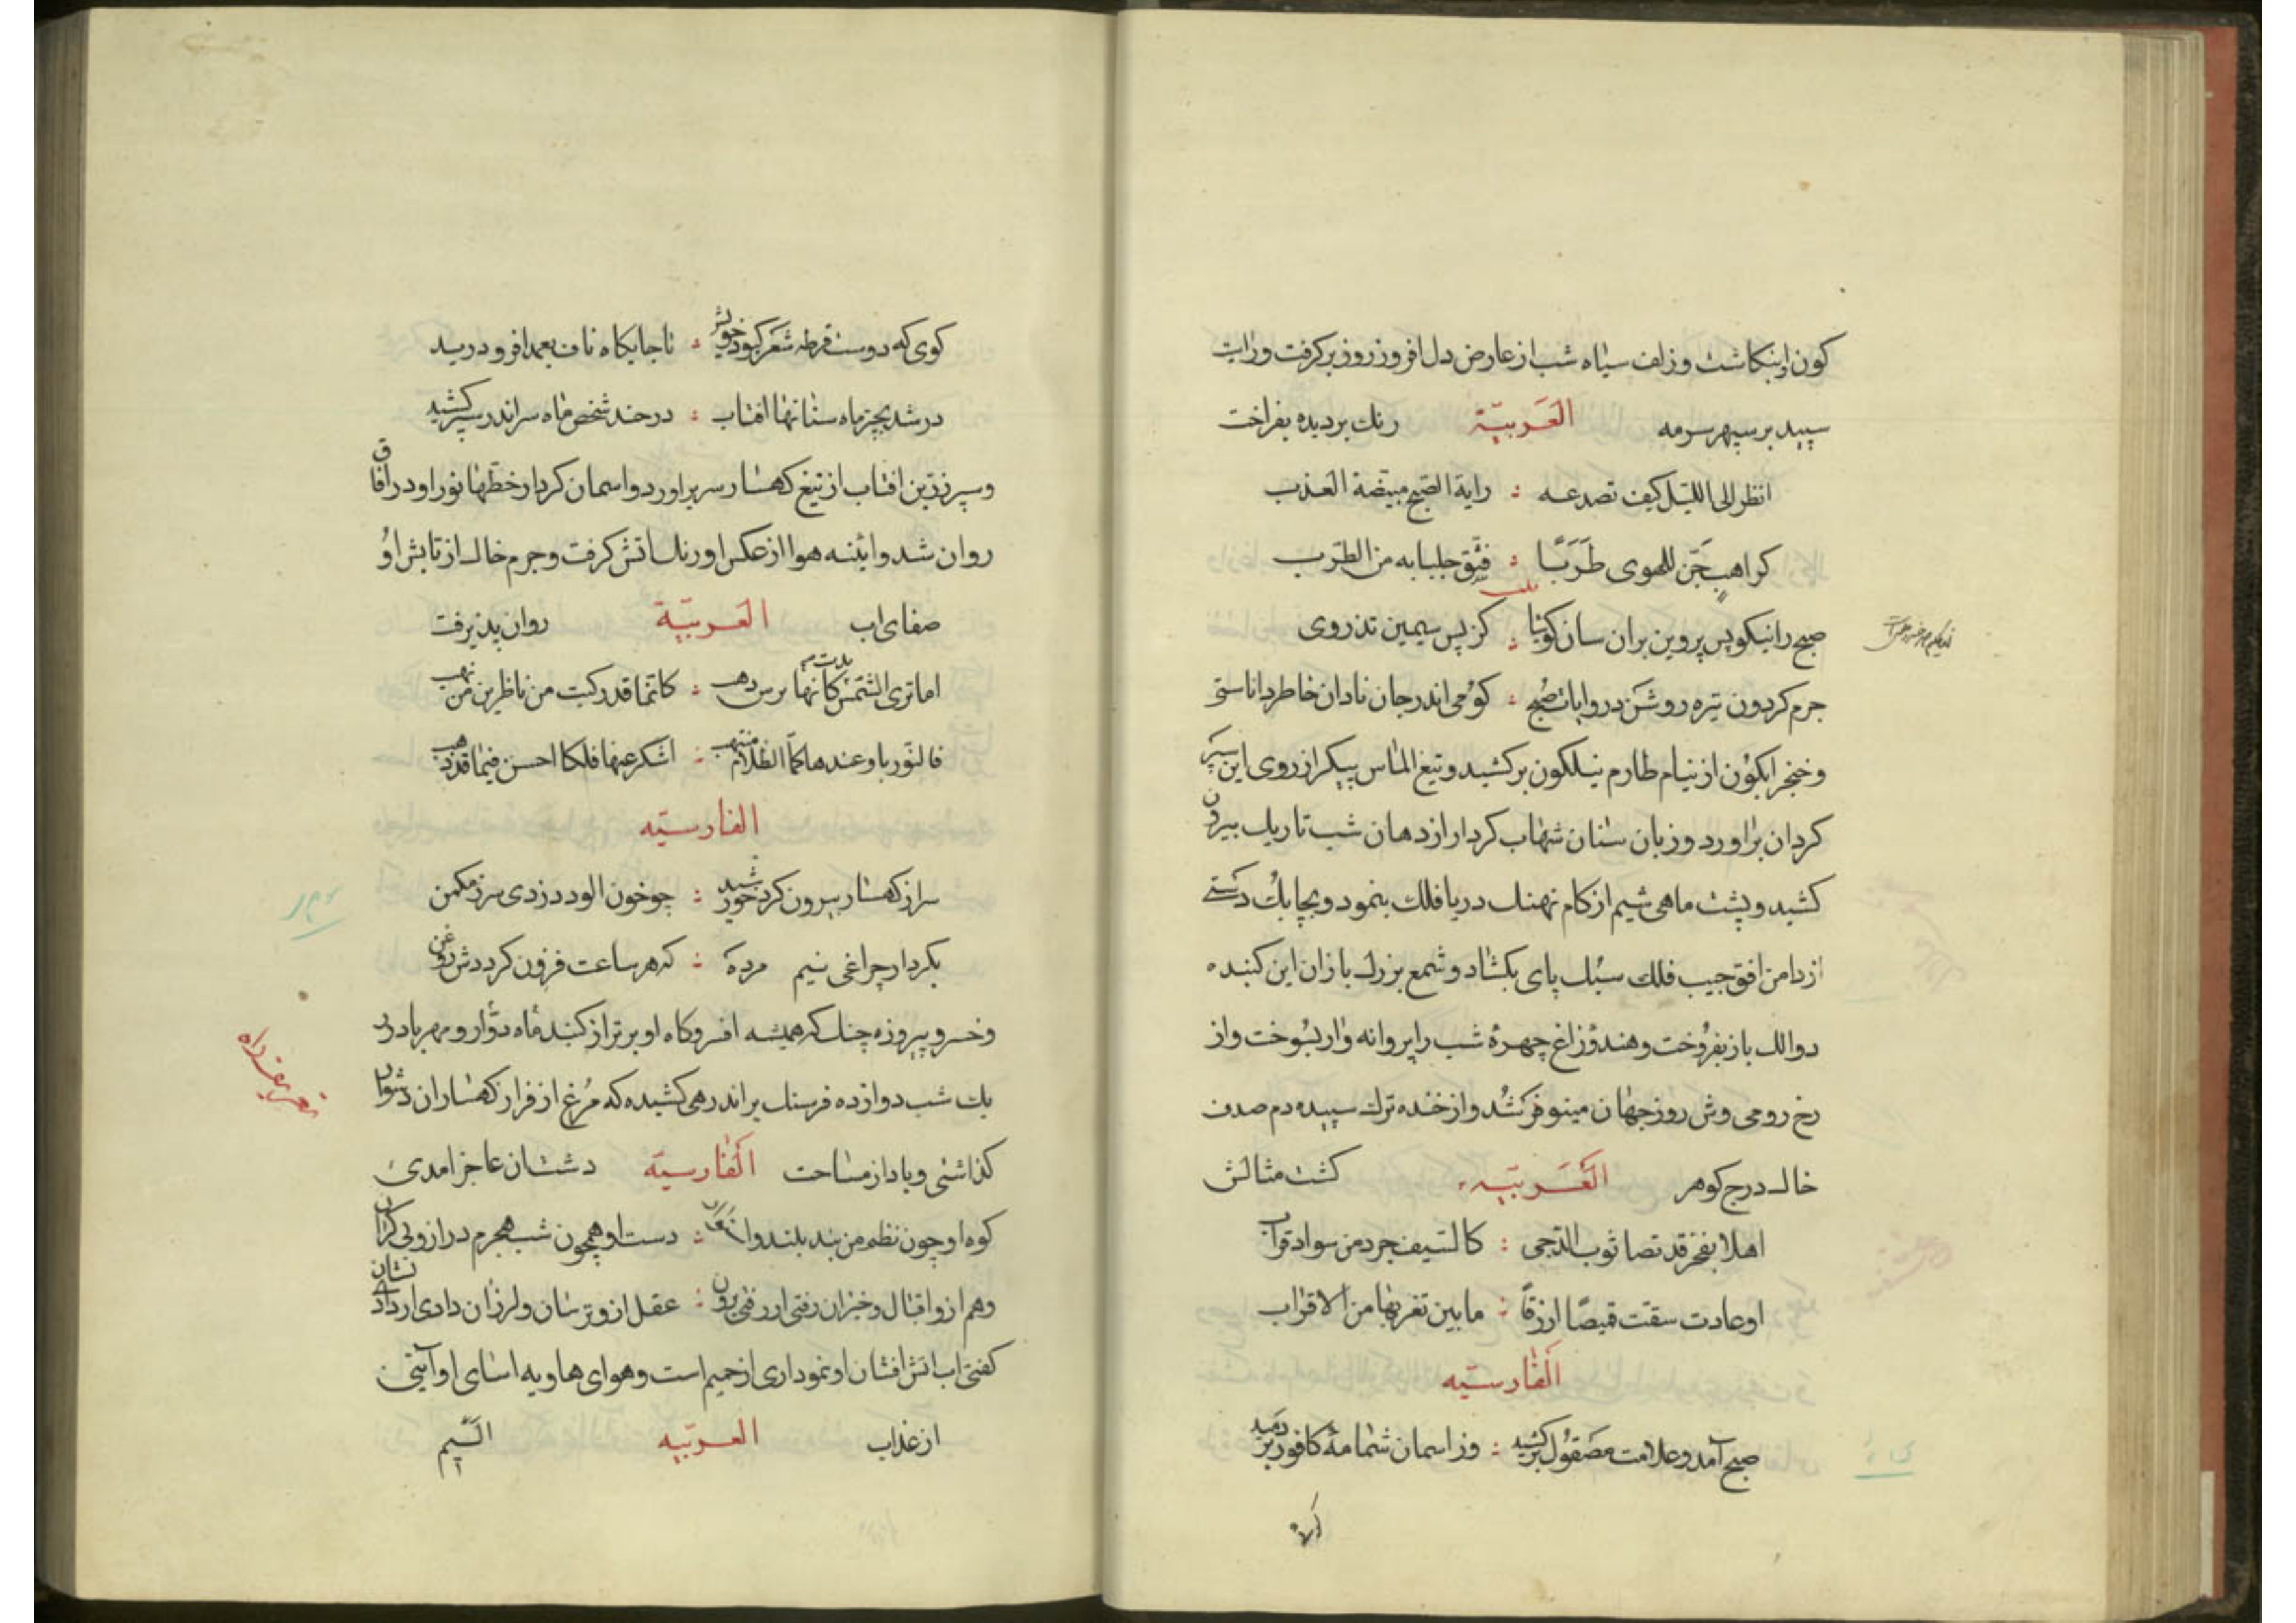 كون اینكاشت و زلف سیاه شب از عارض دل افروز روز بركرفت و رایت
سپید بر سپهر سرمه العَرَبیّة رنك بردیده بفراخت
انظر الی اللیل كیف تصدعه : رایة الصبح مبیضة العذب
كراهب جنّ للهوی طَرَبًا : فشق جلبابه من الطرب
صبح را نیكو پس پروین بران سان كویٔا : كز پس سیمین تذروی
جرم كردون تیره و روشن در و ایات صُبح : كؤیی اندر جان نادان خاطر داناستی
و خنجر ابكون از نیام طارم نیلكون بركشید و تیغ الماس پیكر از روی این سپر
كردان براورد و زبان سنان شهاب كردار از دهان شب تاریك بیرون
كشید و پشت ماهی شیم از كام نهنك دریا فلك بنمود و بچابك دستی
از دامن افق جیب فلك سبك پای بكشاد و شمع بزرك بازان این كنبد
دوالك باز بفروخت و هندو زاغ چهرهٔ شب را پروانه وار بسوخت و از
رخ رومی وش روز جهان مینو فر شد و از خنده ترك سپیده دم صدف
خاك درج كوهر العَرَبیّه كشت مثالش
اهلا بفجر قد نضا ثوب الدجی : كالسیف جرد من سواد قراب
او غادت شقت قمیصًا ازرقًا : ما بین ثغرتها من الاقراب
الفارسیه
صبح آمد و علامت مصقول بركشید : وز اسمان شمامهٔ كافور بردمید
كوی كه دوست قرطه شعر كبود خویش : تا جایكاه ناف بعمدا فرو درید
در شد بچتر ماه سنانها افتاب : در حند شخص ماه سر اندر سپر كشید
و سپر زرّین افتاب از تیغ كهسار سر براورد و اسمان كردار خطها نور او در افاق
روان شد و ائنه هوا از عكس او رنك اتش كرفت و جرم خاك از تابش او
صفای اب العربیّة روان پذیرفت
اما تری الشمس بدت كانها ترس ذهب : كانما قد ركبت من ناظرین من لهب
الفارسیّه
سر از كهسار بیرون كرد خورشید : چو خون الود دزدی سر ز مكمن
بكردار چراغی نیم مرده : كه هر ساعت فزون كرددش روغن
و خسرو پیروزه چنك كه همیشه افسر و كاه او برتر از كنبد ماه دوّار و مهر باد در
یك شب دوازده فرسنك براند رهی كشیده كه مُرغ از فراز كهساران دشوار
كذاشتی و باد از مساحت الفارسیّه دشتان عاجز امدی
كوه او چون نظم من بند بلند و : دست او همچون شب هجرم دراز و بی كران
كفتی اب اتش افشان او نموداری از حمیم است و هوای هاویه اسای او آیتی
از عذاب العربیّه الیم